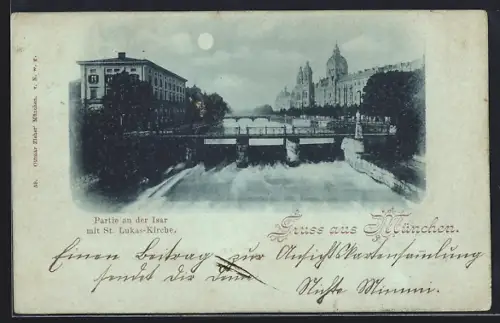 Ottmar Zieher München.
Partie an der Isar
mit St. Lukas-Kirche.
Gruss aus München.
Einen Beitrag zur Ansichtskartensammlung
sendet Dir Deine
Minni.